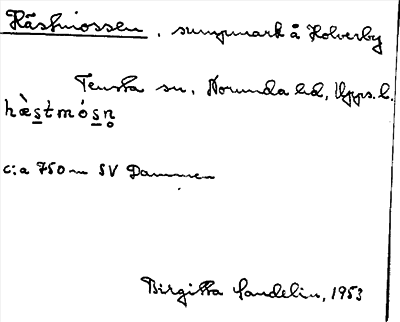 Hästmossen, sumpmark å Holverby
Tensta sn, Norunda hd, Upps. l.
hæ̀s̠t̠mós̠n̥
c:a 750 m SV Dammen
Birgitta Sandelin, 1953